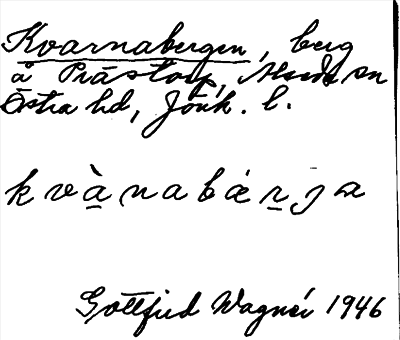 Kvarnabergen, berg
å Prästorp, Alseda sn
Östra hd, Jönk. l.
k v à n a b æ r j a
Gottfrid Wagnér 1946